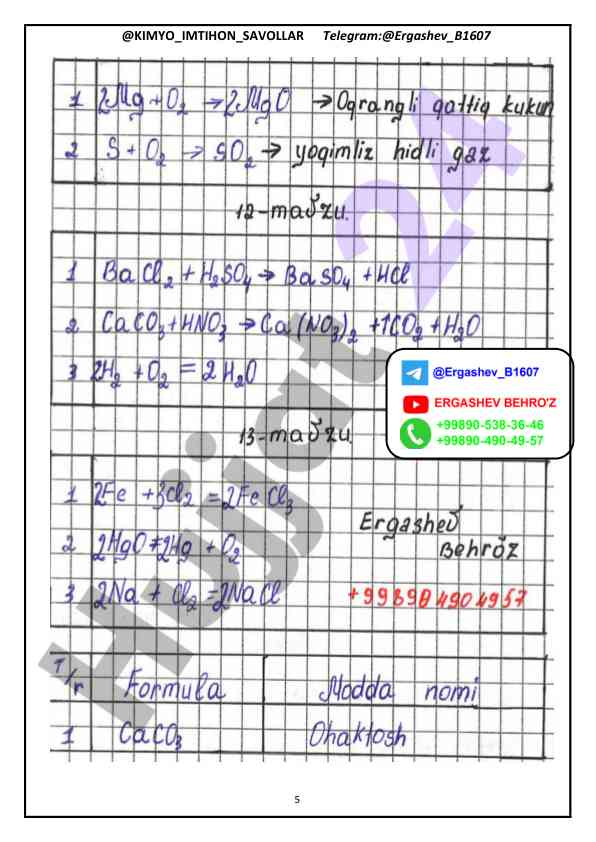 @KIMYO_IMTIHON_SAVOLLAR Telegram:@Ergashev_B1607
1 2Mg+O2 →2MgO →Oqrangli qattiq kukun
2 S+O2 →SO2→ yoqimliz hidli gaz
12-mavzu.
1 BaCl2 + H2SO4→ BaSO4 +HCl
2 CaCO3+HNO3 →Ca(NO3)2 +↑CO2+H2O
3 2H2 + O2 = 2H2O
@Ergashev_B1607
ERGASHEV BEHRO'Z
+99890-538-36-46
+99890-490-49-57
13-mavzu.
1 2Fe +3Cl2 =2FeCl3
2 2HgO=2Hg + O2
3 2Na + Cl2=2NaCl
Ergashev
Behröz
+99890 490 49 57
T/r Formula Modda nomi
1 CaCO3 Ohaktosh
Hujjat 24
5